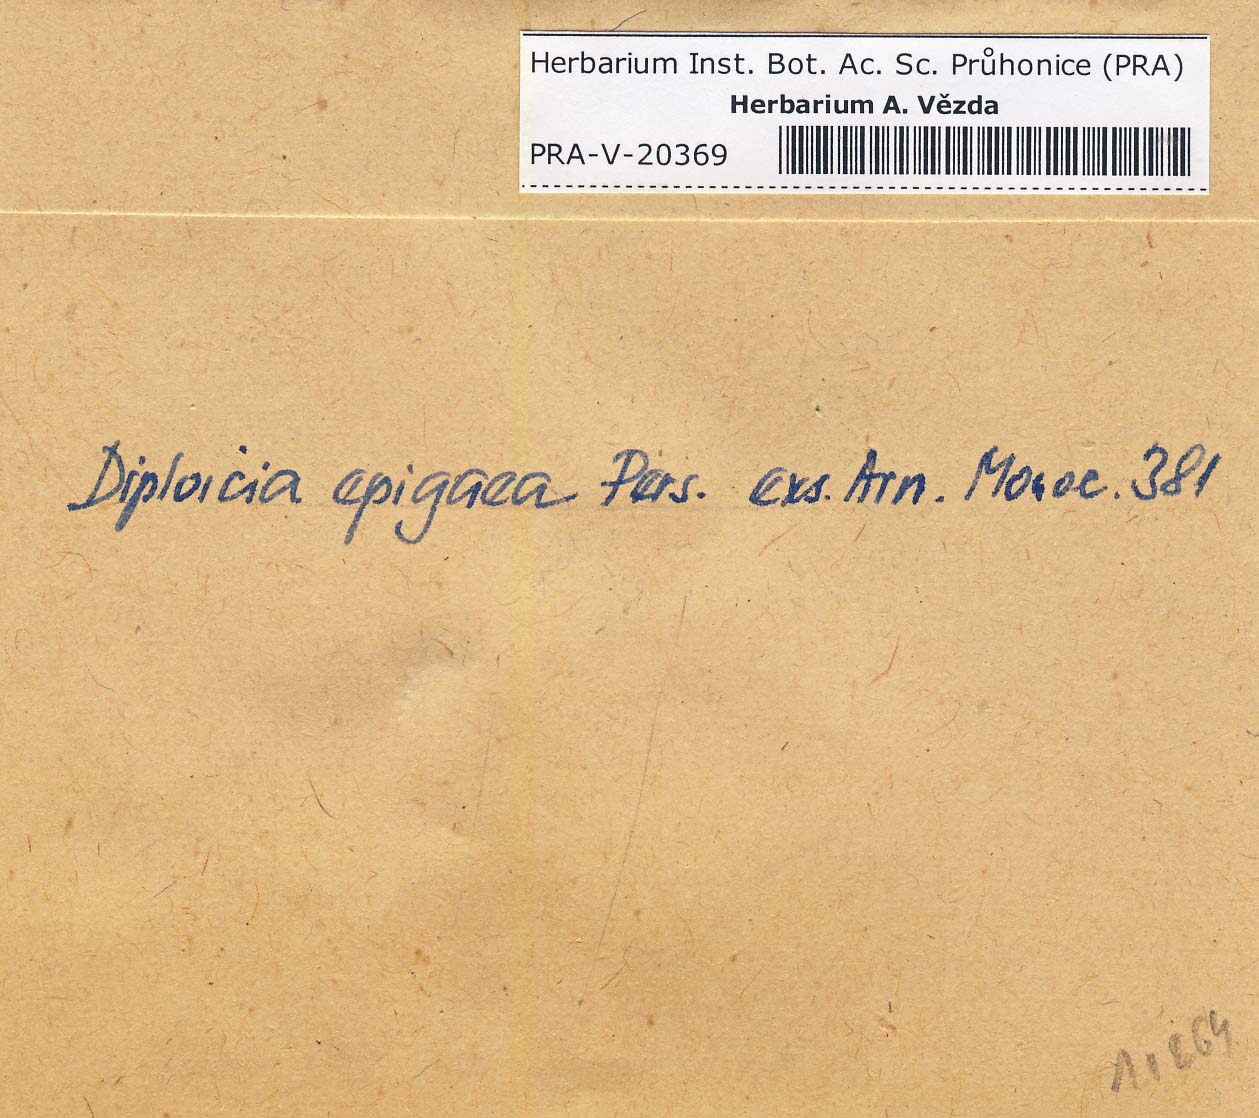 Herbarium Inst. Bot. Ac. Sc. Průhonice (PRA)
Herbarium A. Vězda
PRA-V-20369
Diploicia epigaea Pers. exs. Arn. Monac. 381